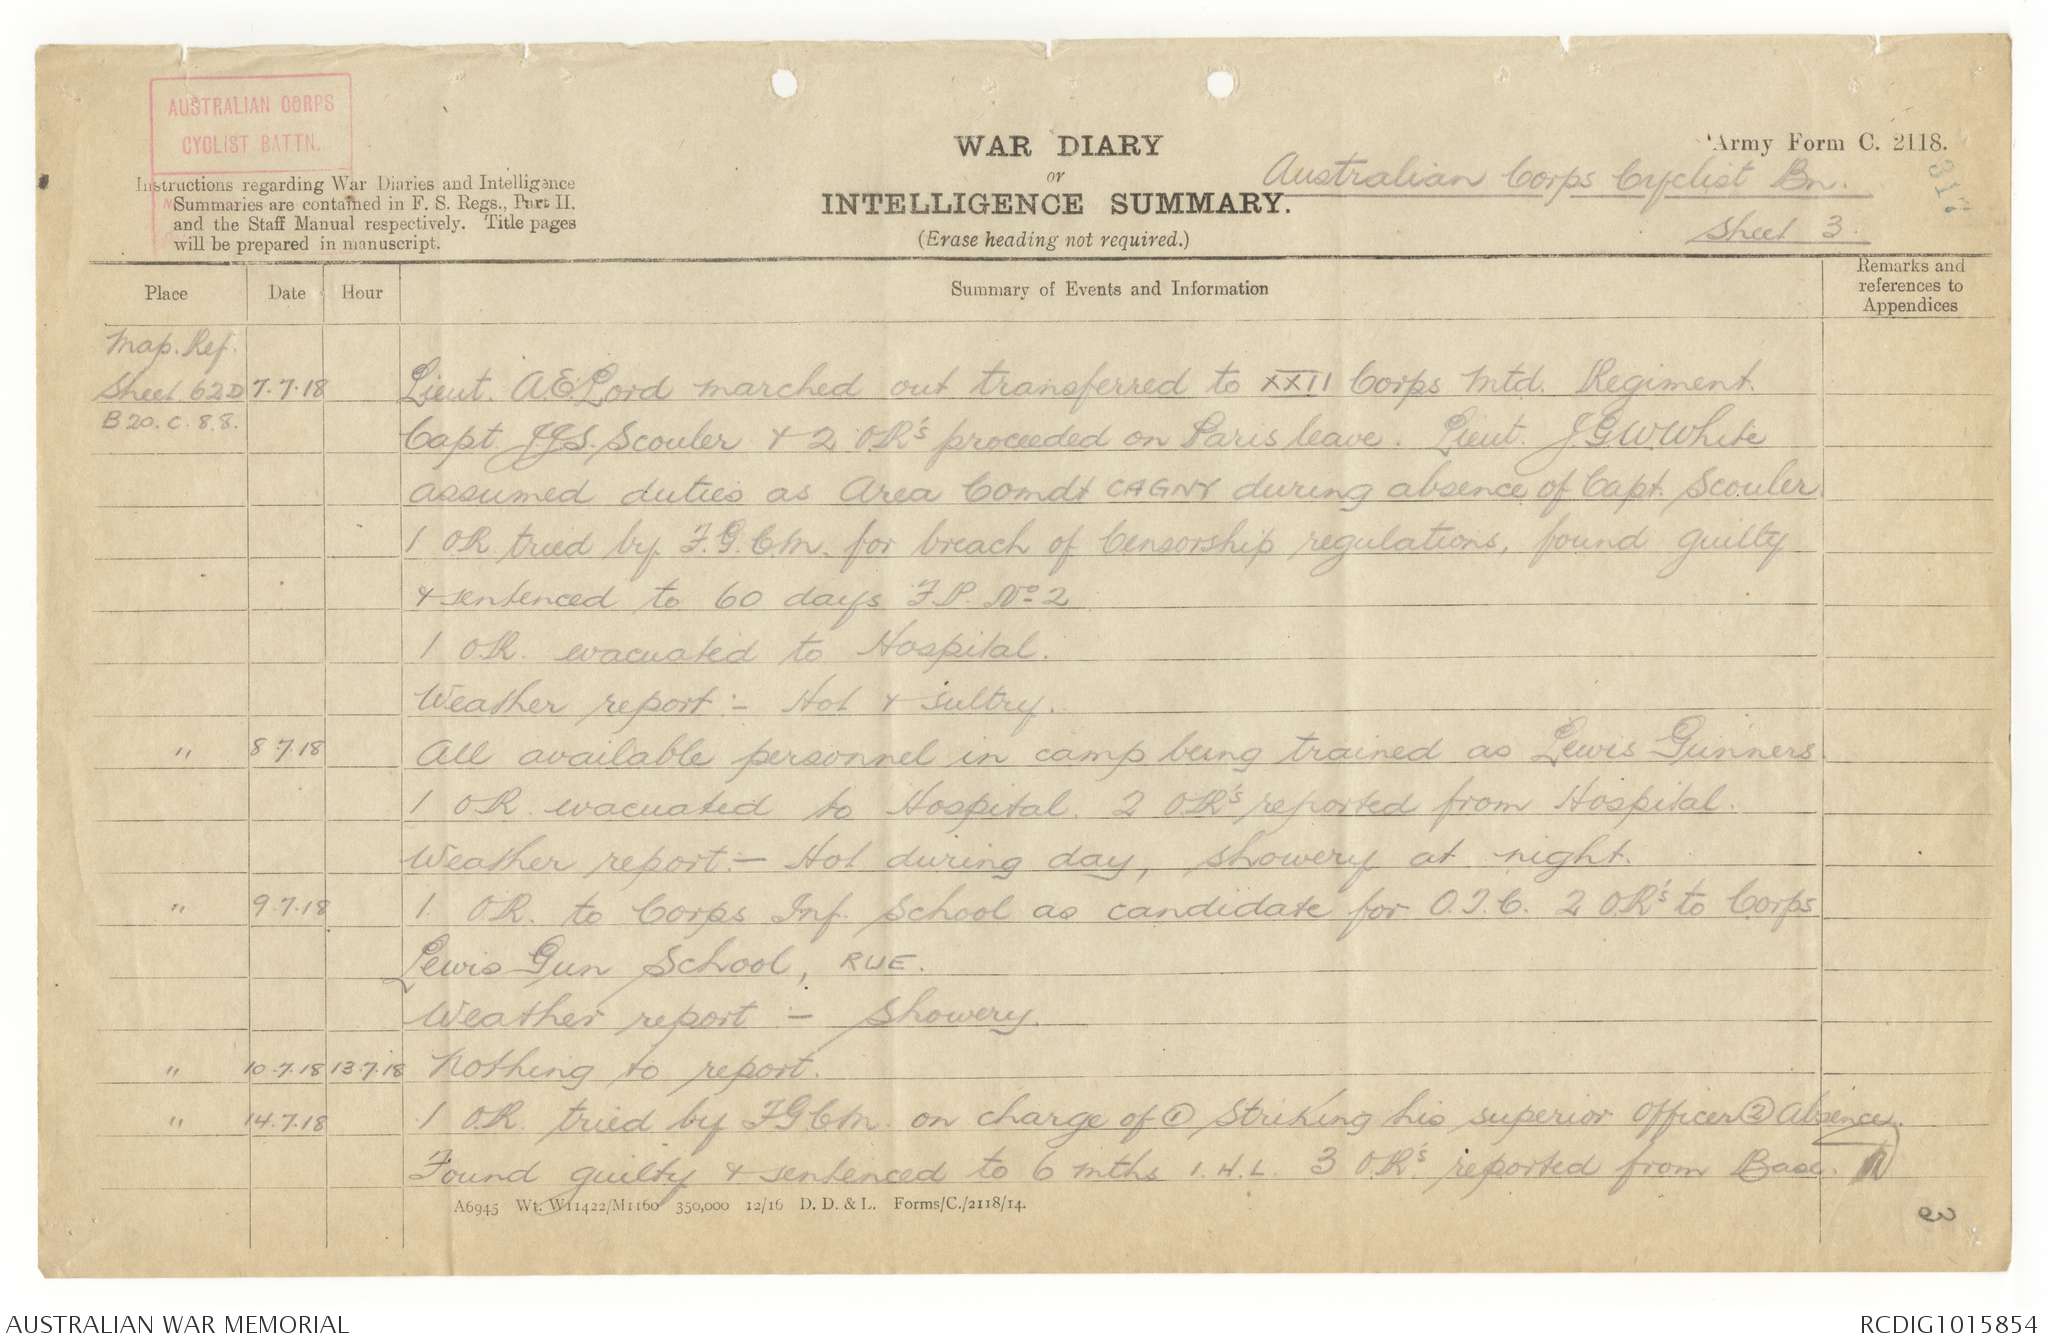 AUSTRALIAN CORPS
CYCLIST BATTN.
WAR DIARY
or
INTELLIGENCE SUMMARY.
(Erase heading not required.)
Army Form C. 2118.
Australian Corps Cyclist Bn.
Sheet 3.
317
Instructions regarding War Diaries and Intelligence
Summaries are contained in F. S. Regs., Part II.
and the Staff Manual respectively. Title pages
will be prepared in manuscript.
Place Date Hour Summary of Events and Information Remarks and references to Appendices
Map. Ref.
Sheet 62D 7.7.18 Lieut. A.E. Lord marched out transferred to XXII Corps Mtd. Regiment.
B20.c.8.8. Capt J.G.S. Scouler & 2 OR's proceeded on Paris leave. Lieut. J.G.W. White
assumed duties as Area Comdt CAGNY during absence of Capt. Scouler.
1 OR tried by F.G.C.M. for breach of Censorship regulations, found guilty
& sentenced to 60 days F.P. No 2
1 OR. evacuated to Hospital.
Weather report :- Hot & sultry.
" 8.7.18 All available personnel in camp being trained as Lewis Gunners.
1 OR evacuated to Hospital. 2 OR's reported from Hospital.
Weather report :- Hot during day, showery at night.
" 9.7.18 1. OR. to Corps Inf. School as candidate for O.T.C. 2 OR's to Corps
Lewis Gun School, RUE.
Weather report :- Showery.
" 10.7.18 13.7.18 Nothing to report.
" 14.7.18 1 OR. tried by FGCM. on charge of ① Striking his superior Officer ② Absence.
Found guilty & sentenced to 6 mths I.H.L. 3 OR's reported from Base.
A6945 Wt. W11422/M1160 350,000 12/16 D. D. & L. Forms/C./2118/14.
AUSTRALIAN WAR MEMORIAL
RCDIG1015854